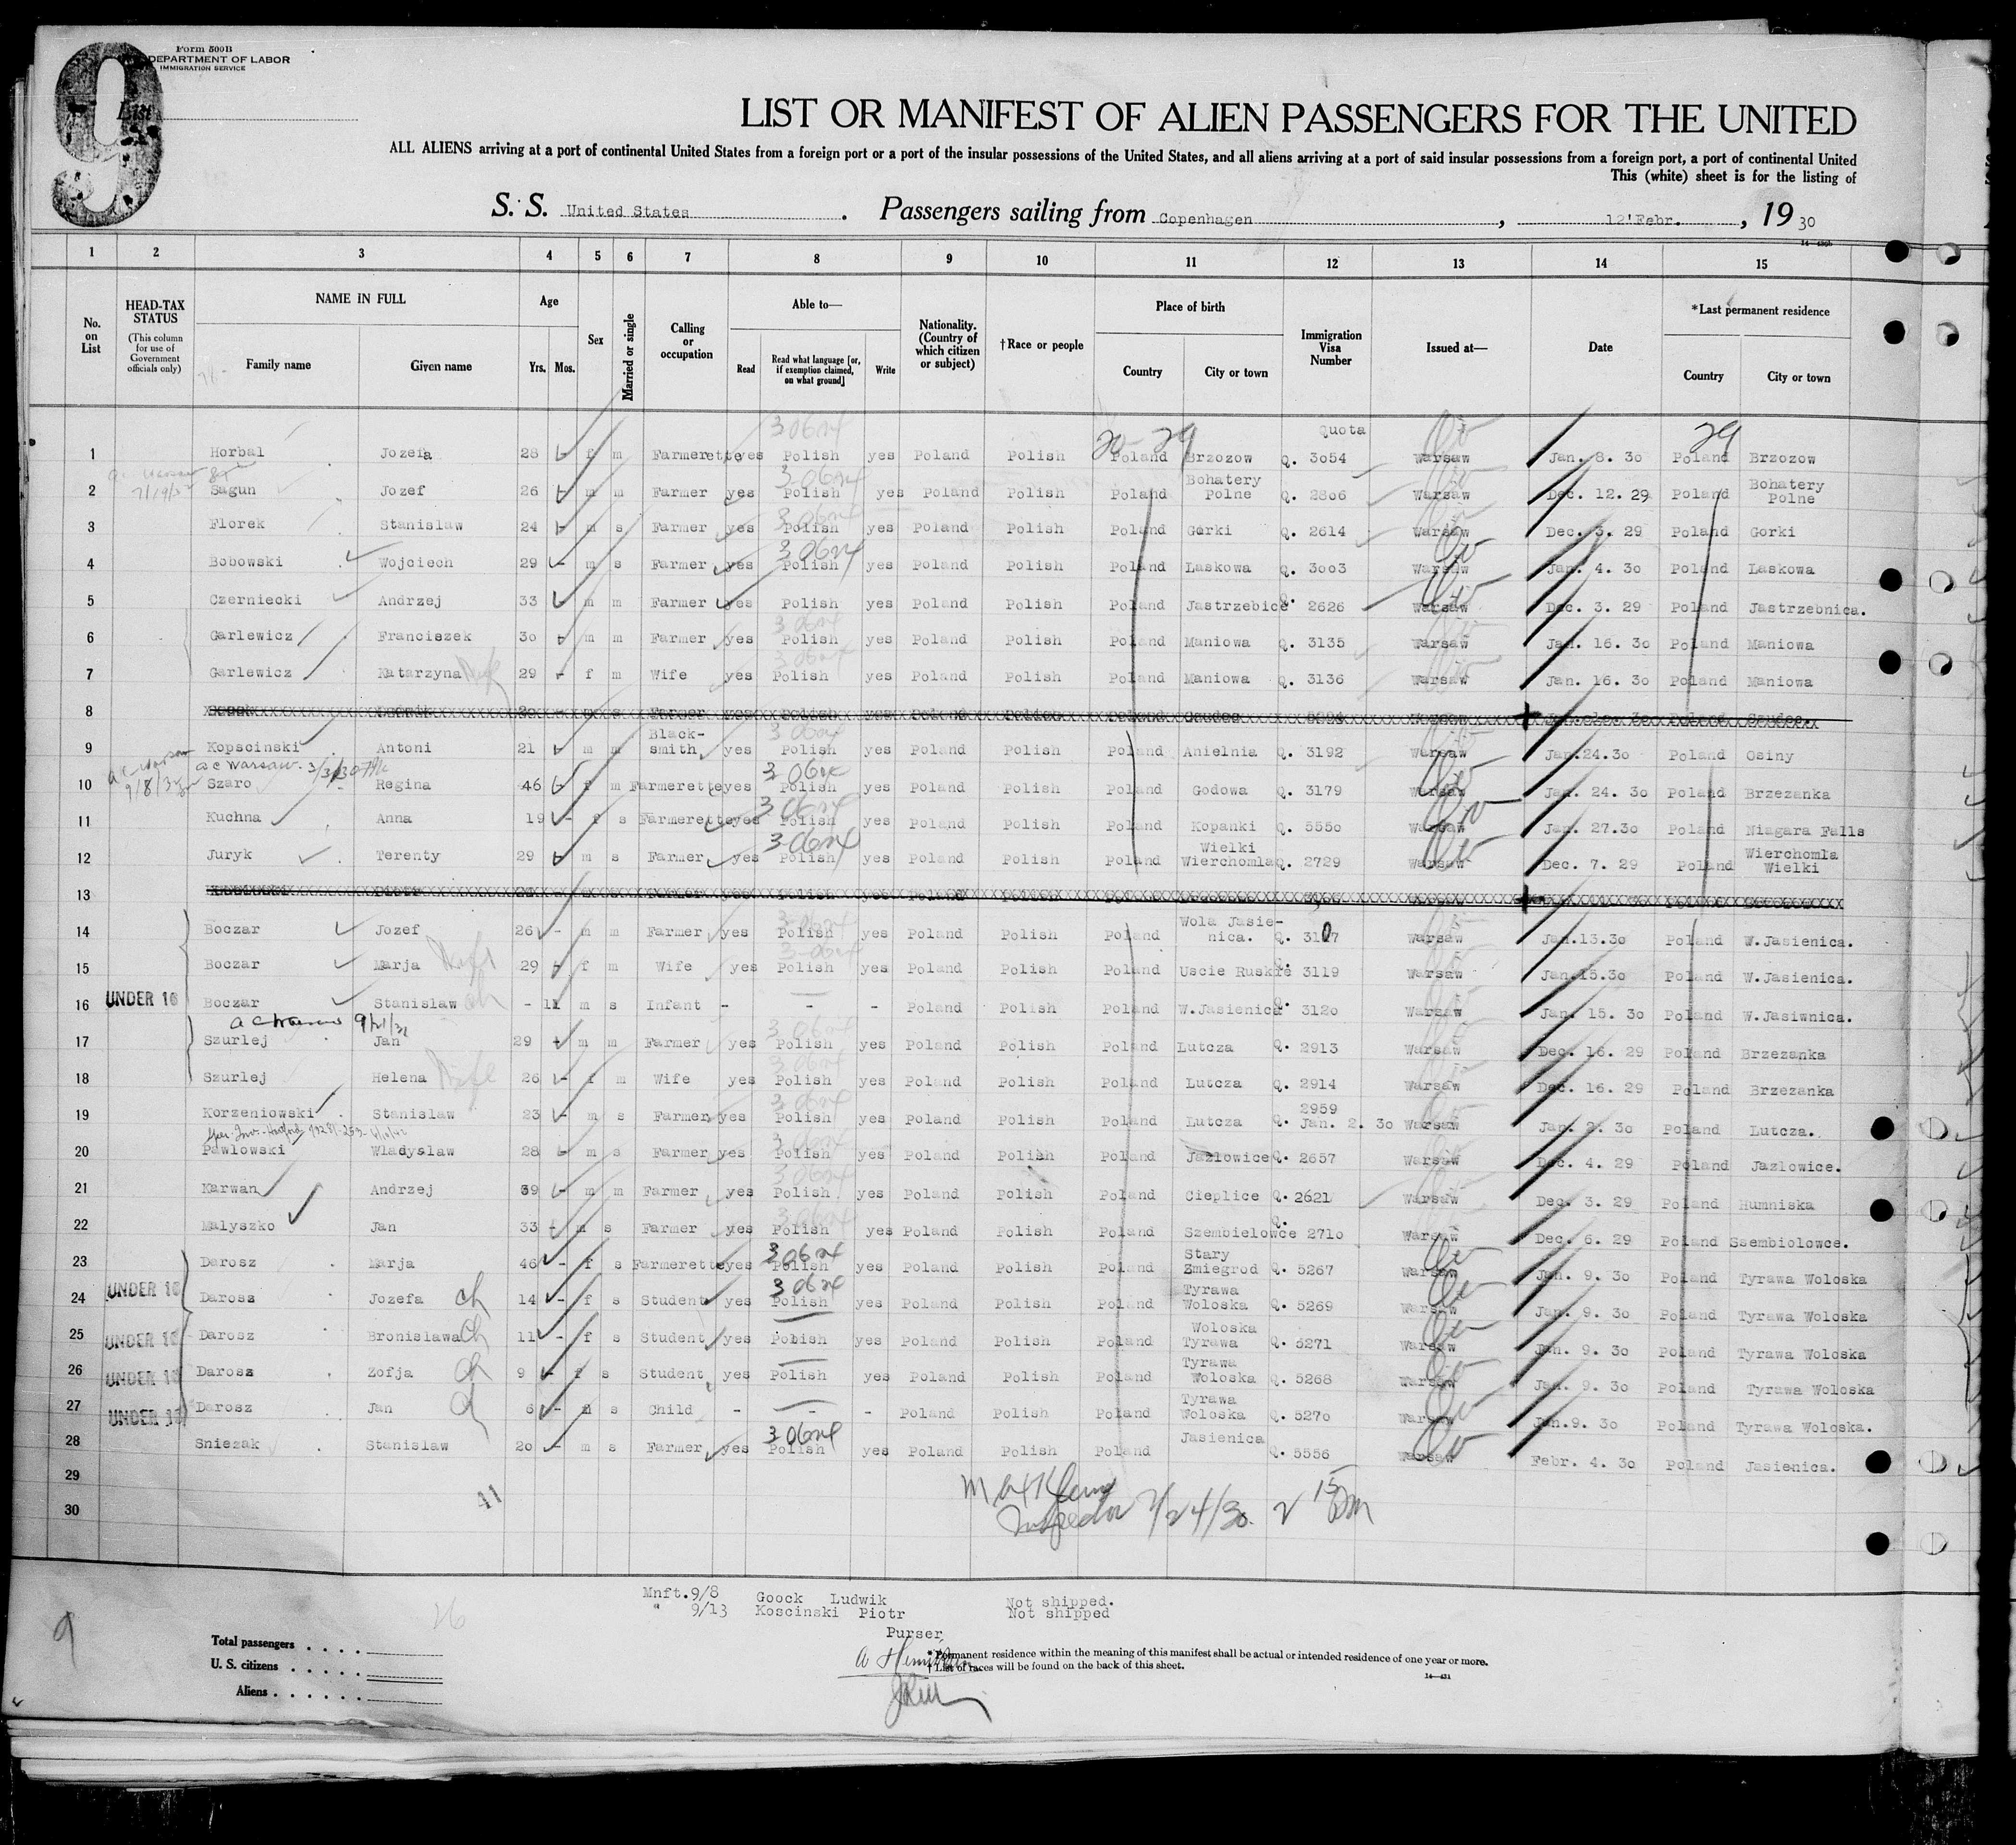 9
Form 500B
DEPARTMENT OF LABOR
IMMIGRATION SERVICE
List
LIST OR MANIFEST OF ALIEN PASSENGERS FOR THE UNITED
ALL ALIENS arriving at a port of continental United States from a foreign port or a port of the insular possessions of the United States, and all aliens arriving at a port of said insular possessions from a foreign port, a port of continental United
This (white) sheet is for the listing of
S. S. United States. Passengers sailing from Copenhagen, 12'Febr., 19 30
1 2 3 4 5 6 7 8 9 10 11 12 13 14 15
No. on List HEAD-TAX STATUS (This column for use of Government officials only) NAME IN FULL Family name Given name Age Yrs. Mos. Sex Married or single Calling or occupation Able to— Read Read what language [or, if exemption claimed, on what ground] Write Nationality. (Country of which citizen or subject) †Race or people Place of birth Country City or town Immigration Visa Number Issued at— Date *Last permanent residence Country City or town
Quota
1 Horbal Jozefa 28 - f m Farmerette yes Polish yes Poland Polish Poland Brzozow Q. 3054 Warsaw Jan. 8. 30 Poland Brzozow
2 Sagun Jozef 26 m m Farmer yes Polish yes Poland Polish Poland Bohatery Polne Q. 2806 Warsaw Dec. 12. 29 Poland Bohatery Polne
3 Florek Stanislaw 24 - m s Farmer yes Polish yes Poland Polish Poland Gorki Q. 2614 Warsaw Dec. 3. 29 Poland Gorki
4 Bobowski Wojciech 29 - m s Farmer yes Polish yes Poland Polish Poland Laskowa Q. 3003 Warsaw Jan. 4. 30 Poland Laskowa
5 Czerniecki Andrzej 33 m m Farmer yes Polish yes Poland Polish Poland Jastrzebice Q. 2626 Warsaw Dec. 3. 29 Poland Jastrzebnica.
6 Garlewicz Franciszek 30 - m m Farmer yes Polish yes Poland Polish Poland Maniowa Q. 3135 Warsaw Jan. 16. 30 Poland Maniowa
7 Garlewicz Katarzyna Wife 29 - f m Wife yes Polish yes Poland Polish Poland Maniowa Q. 3136 Warsaw Jan. 16. 30 Poland Maniowa
8
9 Kopscinski Antoni 21 - m m Black-smith, yes Polish yes Poland Polish Poland Anielnia Q. 3192 Warsaw Jan.24.30 Poland Osiny
ac Warsaw 3/3/30
10 Szaro Regina 46 - f m Farmerette yes Polish yes Poland Polish Poland Godowa Q. 3179 Warsaw Jan. 24. 30 Poland Brzezanka
11 Kuchna Anna 19 - f s Farmerette yes Polish yes Poland Polish Poland Kopanki Q. 5550 Warsaw Jan. 27.30 Poland Niagara Falls
12 Juryk Terenty 29 - m s Farmer yes Polish yes Poland Polish Poland Wielki Wierchomla Q. 2729 Warsaw Dec. 7. 29 Poland Wierchomla Wielki
13
14 Boczar Jozef 26 - m m Farmer yes Polish yes Poland Polish Poland Wola Jasie-nica. Q. 3107 Warsaw Jan.13.30 Poland W.Jasienica.
15 Boczar Marja Wife 29 - f m Wife yes Polish yes Poland Polish Poland Uscie Ruskie Q. 3119 Warsaw Jan.15.30 Poland W.Jasienica.
16 UNDER 16 Boczar Stanislaw ch - 11 m s Infant - - - Poland Polish Poland W.Jasienica Q. 3120 Warsaw Jan. 15. 30 Poland W.Jasiwnica.
ac Warsaw 9/21/31
17 Szurlej Jan 29 - m m Farmer yes Polish yes Poland Polish Poland Lutcza Q. 2913 Warsaw Dec. 16. 29 Poland Brzezanka
18 Szurlej Helena Wife 26 - f m Wife yes Polish yes Poland Polish Poland Lutcza Q. 2914 Warsaw Dec. 16. 29 Poland Brzezanka
19 Korzeniowski Stanislaw 23 - m s Farmer yes Polish yes Poland Polish Poland Lutcza Q. 2959 Jan. 2. 30 Warsaw Jan. 2. 30 Poland Lutcza.
20 Pawlowski Wladyslaw 28 - m s Farmer yes Polish yes Poland Polish Poland Jazlowice Q. 2657 Warsaw Dec. 4. 29 Poland Jazlowice.
21 Karwan Andrzej 39 - m m Farmer yes Polish yes Poland Polish Poland Cieplice Q. 2621 Warsaw Dec. 3. 29 Poland Humniska
22 Malyszko Jan 33 - m s Farmer yes Polish yes Poland Polish Poland Szembielowce Q. 2710 Warsaw Dec. 6. 29 Poland Ssembiolowce.
23 Darosz Marja 46 - f s Farmerette yes Polish yes Poland Polish Poland Stary Zmiegrod Q. 5267 Warsaw Jan. 9. 30 Poland Tyrawa Woloska
24 UNDER 16 Darosz Jozefa ch 14 - f s Student yes Polish yes Poland Polish Poland Tyrawa Woloska Q. 5269 Warsaw Jan. 9. 30 Poland Tyrawa Woloska
25 UNDER 16 Darosz Bronislawa ch 11 - f s Student yes Polish yes Poland Polish Poland Woloska Tyrawa Q. 5271 Warsaw Jan. 9. 30 Poland Tyrawa Woloska
26 UNDER 16 Darosz Zofja ch 9 - f s Student yes Polish yes Poland Polish Poland Tyrawa Woloska Q. 5268 Warsaw Jan. 9. 30 Poland Tyrawa Woloska
27 UNDER 16 Darosz Jan ch 6 - m s Child - - - Poland Polish Poland Tyrawa Woloska Q. 5270 Warsaw Jan.9. 30 Poland Tyrawa Woloska.
28 Sniezak Stanislaw 20 - m s Farmer yes Polish yes Poland Polish Poland Jasienica Q. 5556 Warsaw Febr. 4. 30 Poland Jasienica.
29
30
41
Inspector 2/24/30. 2 15 PM
Mnft.9/8 Goock Ludwik Not shipped.
" 9/13 Koscinski Piotr Not shipped
Purser
9
26
Total passengers
U. S. citizens
Aliens
*Permanent residence within the meaning of this manifest shall be actual or intended residence of one year or more.
†List of races will be found on the back of this sheet.
14—431